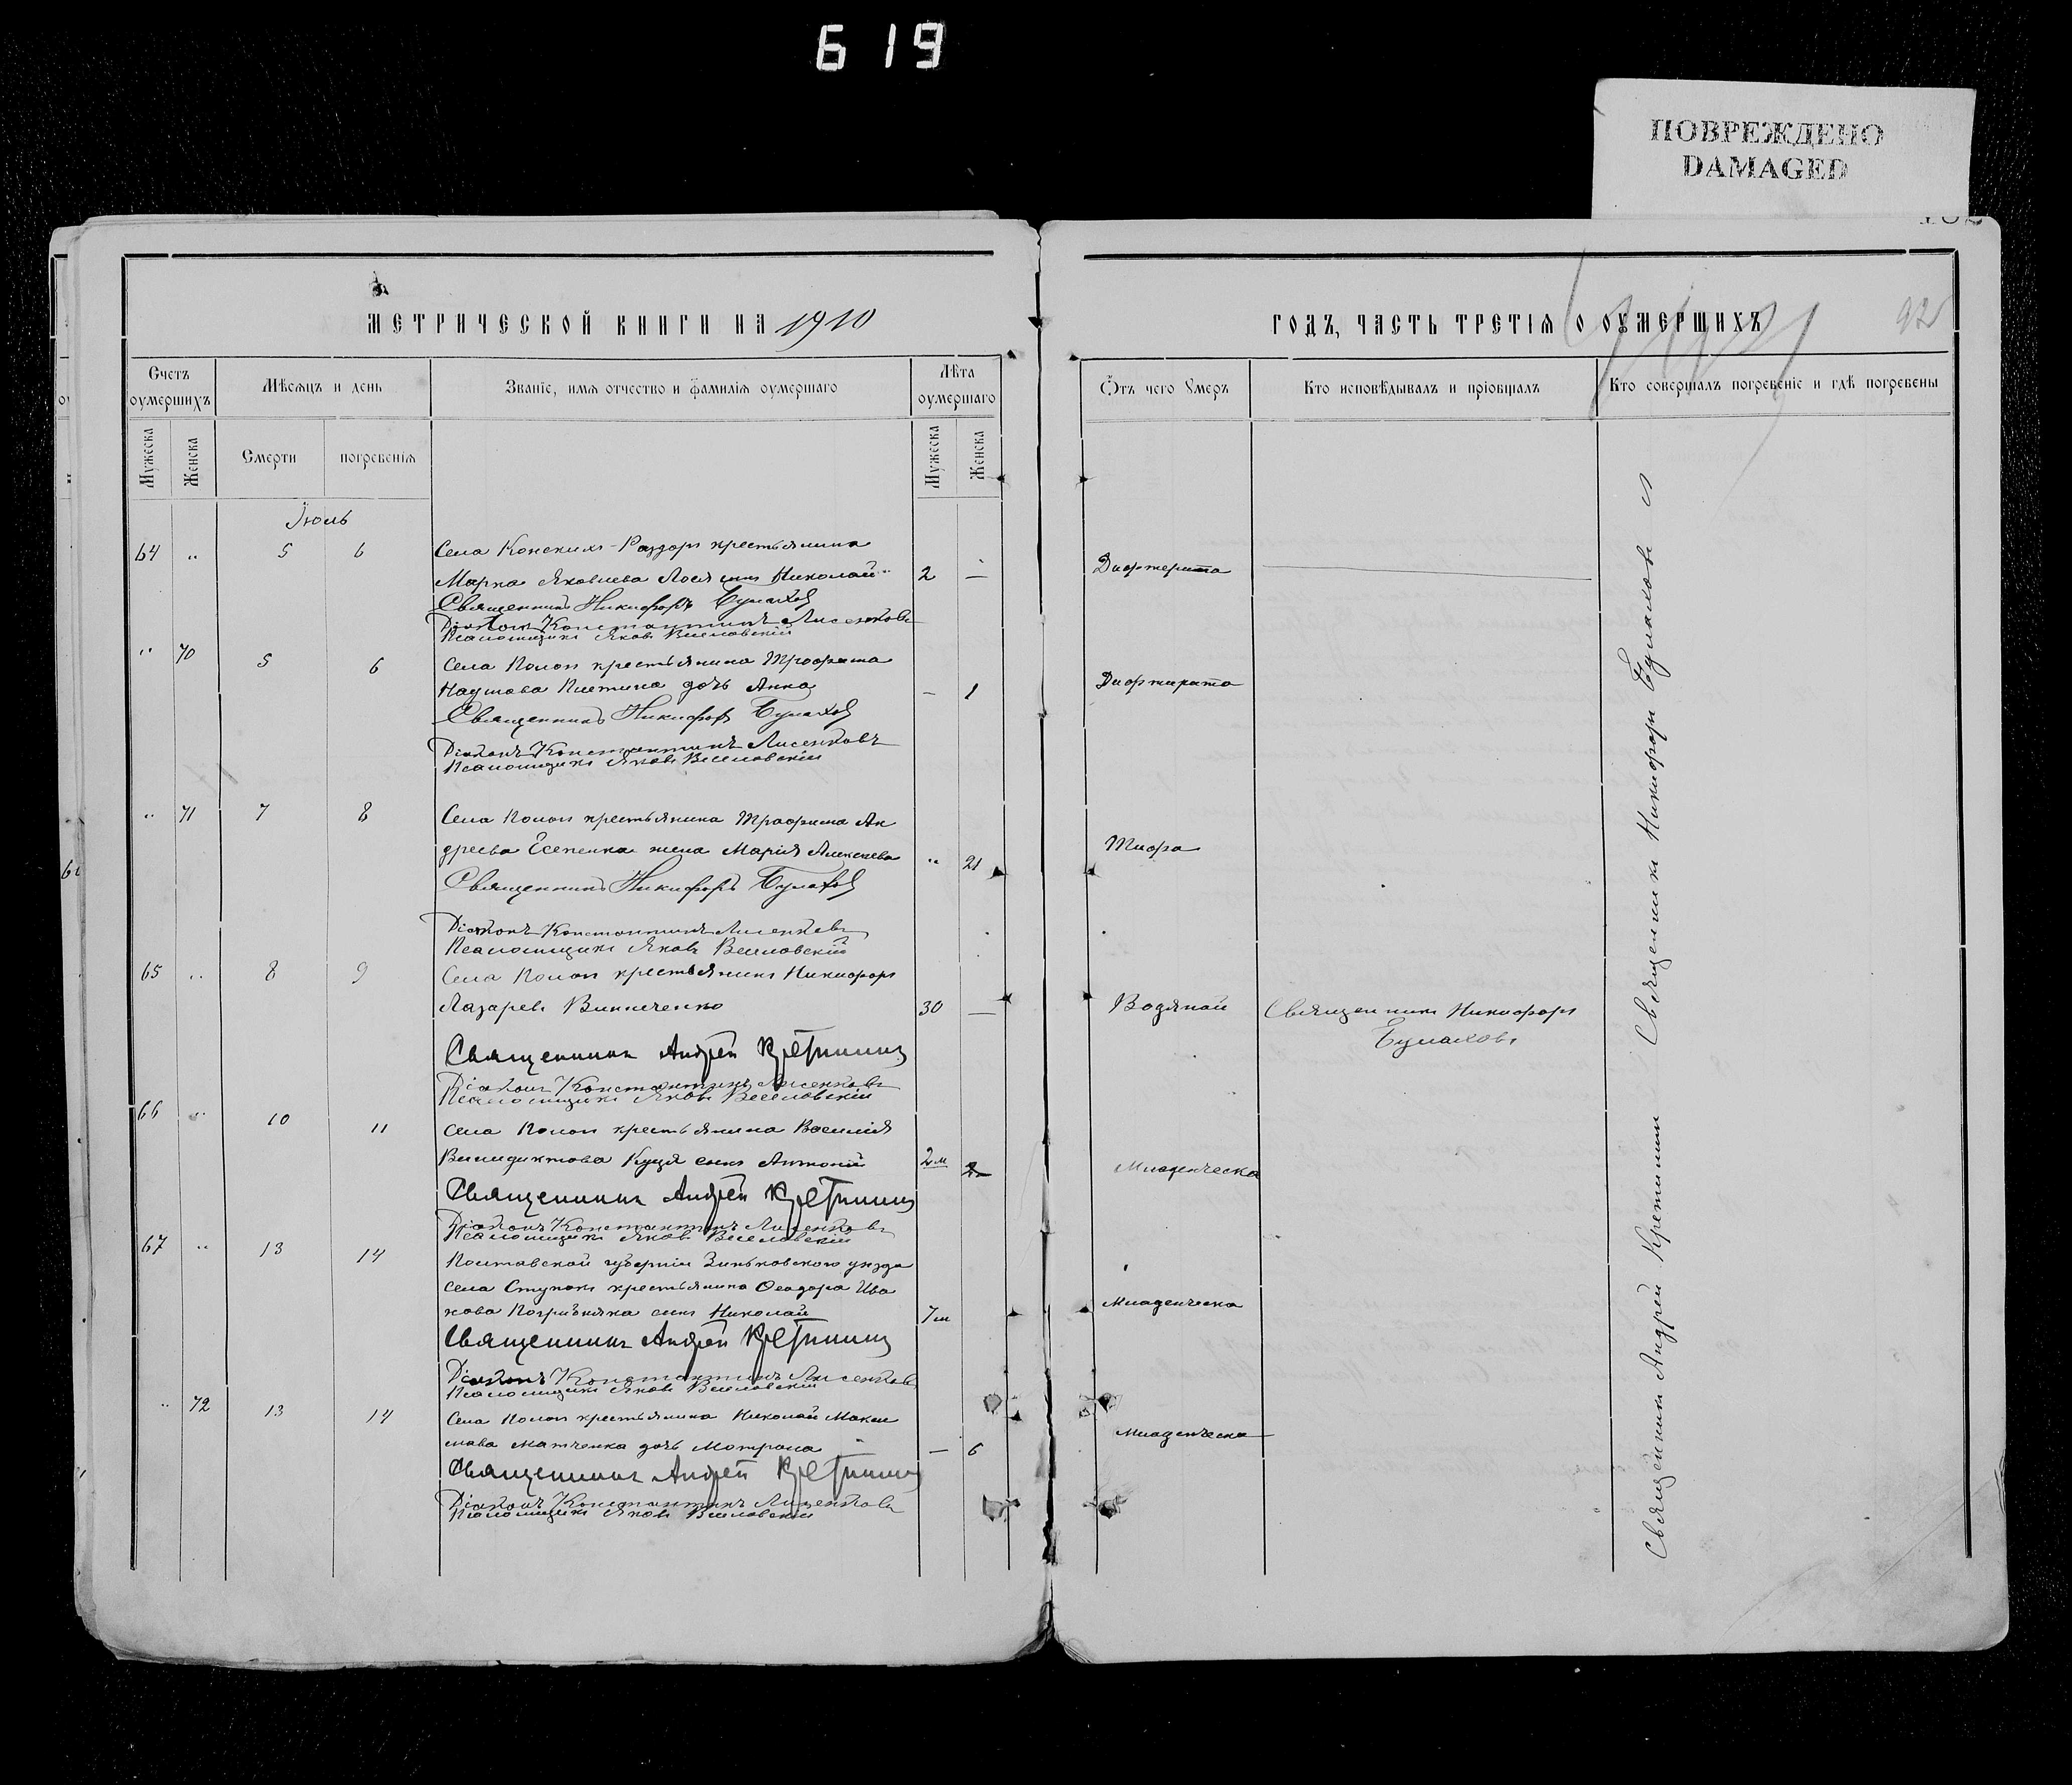 619
ПОВРЕЖДЕНО
DAMAGED
МЕТРИЧЕСКОЙ КНИГИ НА 1910
Счетъ оумершихъ
Мѣсяцъ и день
Званіе, имя отчество и фамилія оумершаго
Лѣта оумершаго
Мужеска
Женска
Смерти
погребенія
Мужеска
Женска
Іюль
64 " 5 6 Села Конскихъ-Раздоръ крестьянина
Марка Яковлева Лося сынъ Николай 2 —
Священникъ Никифоръ Булахов
Діаконъ Константинъ Лисенковъ
Псаломщикъ Яковъ Веселовскій
" 70 5 6 Села Пологъ крестьянина Трофима
Наумова дочь Анна — 1
Священникъ Никифоръ Булахов
Діаконъ Константинъ Лисенковъ
Псаломщикъ Яковъ Веселовскій
" 71 7 8 Села Пологъ крестьянина Трофима Ан
дреева Есепенка жена Марія Алексеева " 21
Священникъ Никифоръ Булахов
Діаконъ Константинъ Лисенковъ
Псаломщикъ Яковъ Веселовскій
65 " 8 9 Села Пологъ крестьянинъ Никифоръ
Лазаревъ Винниченко 30 —
Священникъ Андрей Кретининъ
Діаконъ Константинъ Лисенковъ
Псаломщикъ Яковъ Веселовскій
66 " 10 11 Села Пологъ крестьянина Василія
Венедиктова Куця сынъ Антоній 2м
Священникъ Андрей Кретининъ
Діаконъ Константинъ Лисенковъ
Псаломщикъ Яковъ Веселовскій
67 " 13 14 Полтавской губерніи Зиньковского уезда
села Ступокъ крестьянина Ѳеодора Ива
нова сынъ Николай 7м
Священникъ Андрей Кретининъ
Діаконъ Константинъ Лисенковъ
Псаломщикъ Яковъ Веселовскій
" 72 13 14 Села Пологъ крестьянина Николай Макси
мова Матченка дочь Мотрона — 6
Священникъ Андрей Кретининъ
Діаконъ Константинъ Лисенковъ
Псаломщикъ Яковъ Веселовскій
ГОДЪ, ЧАСТЬ ТРЕТІЯ О ОУМЕРШИХЪ
92
Ѿтъ чего Умеръ
Кто исповѣдывалъ и пріобщалъ
Кто совершалъ погребеніе и гдѣ погребены
Дифтерита
Дифтирита
Тифа
Водяной Священникъ Никифоръ
Булаховъ
Младенческа
Младенческа
Младенческа
Священникъ Андрей Кретининъ Священникъ Никифоръ Булаховъ и